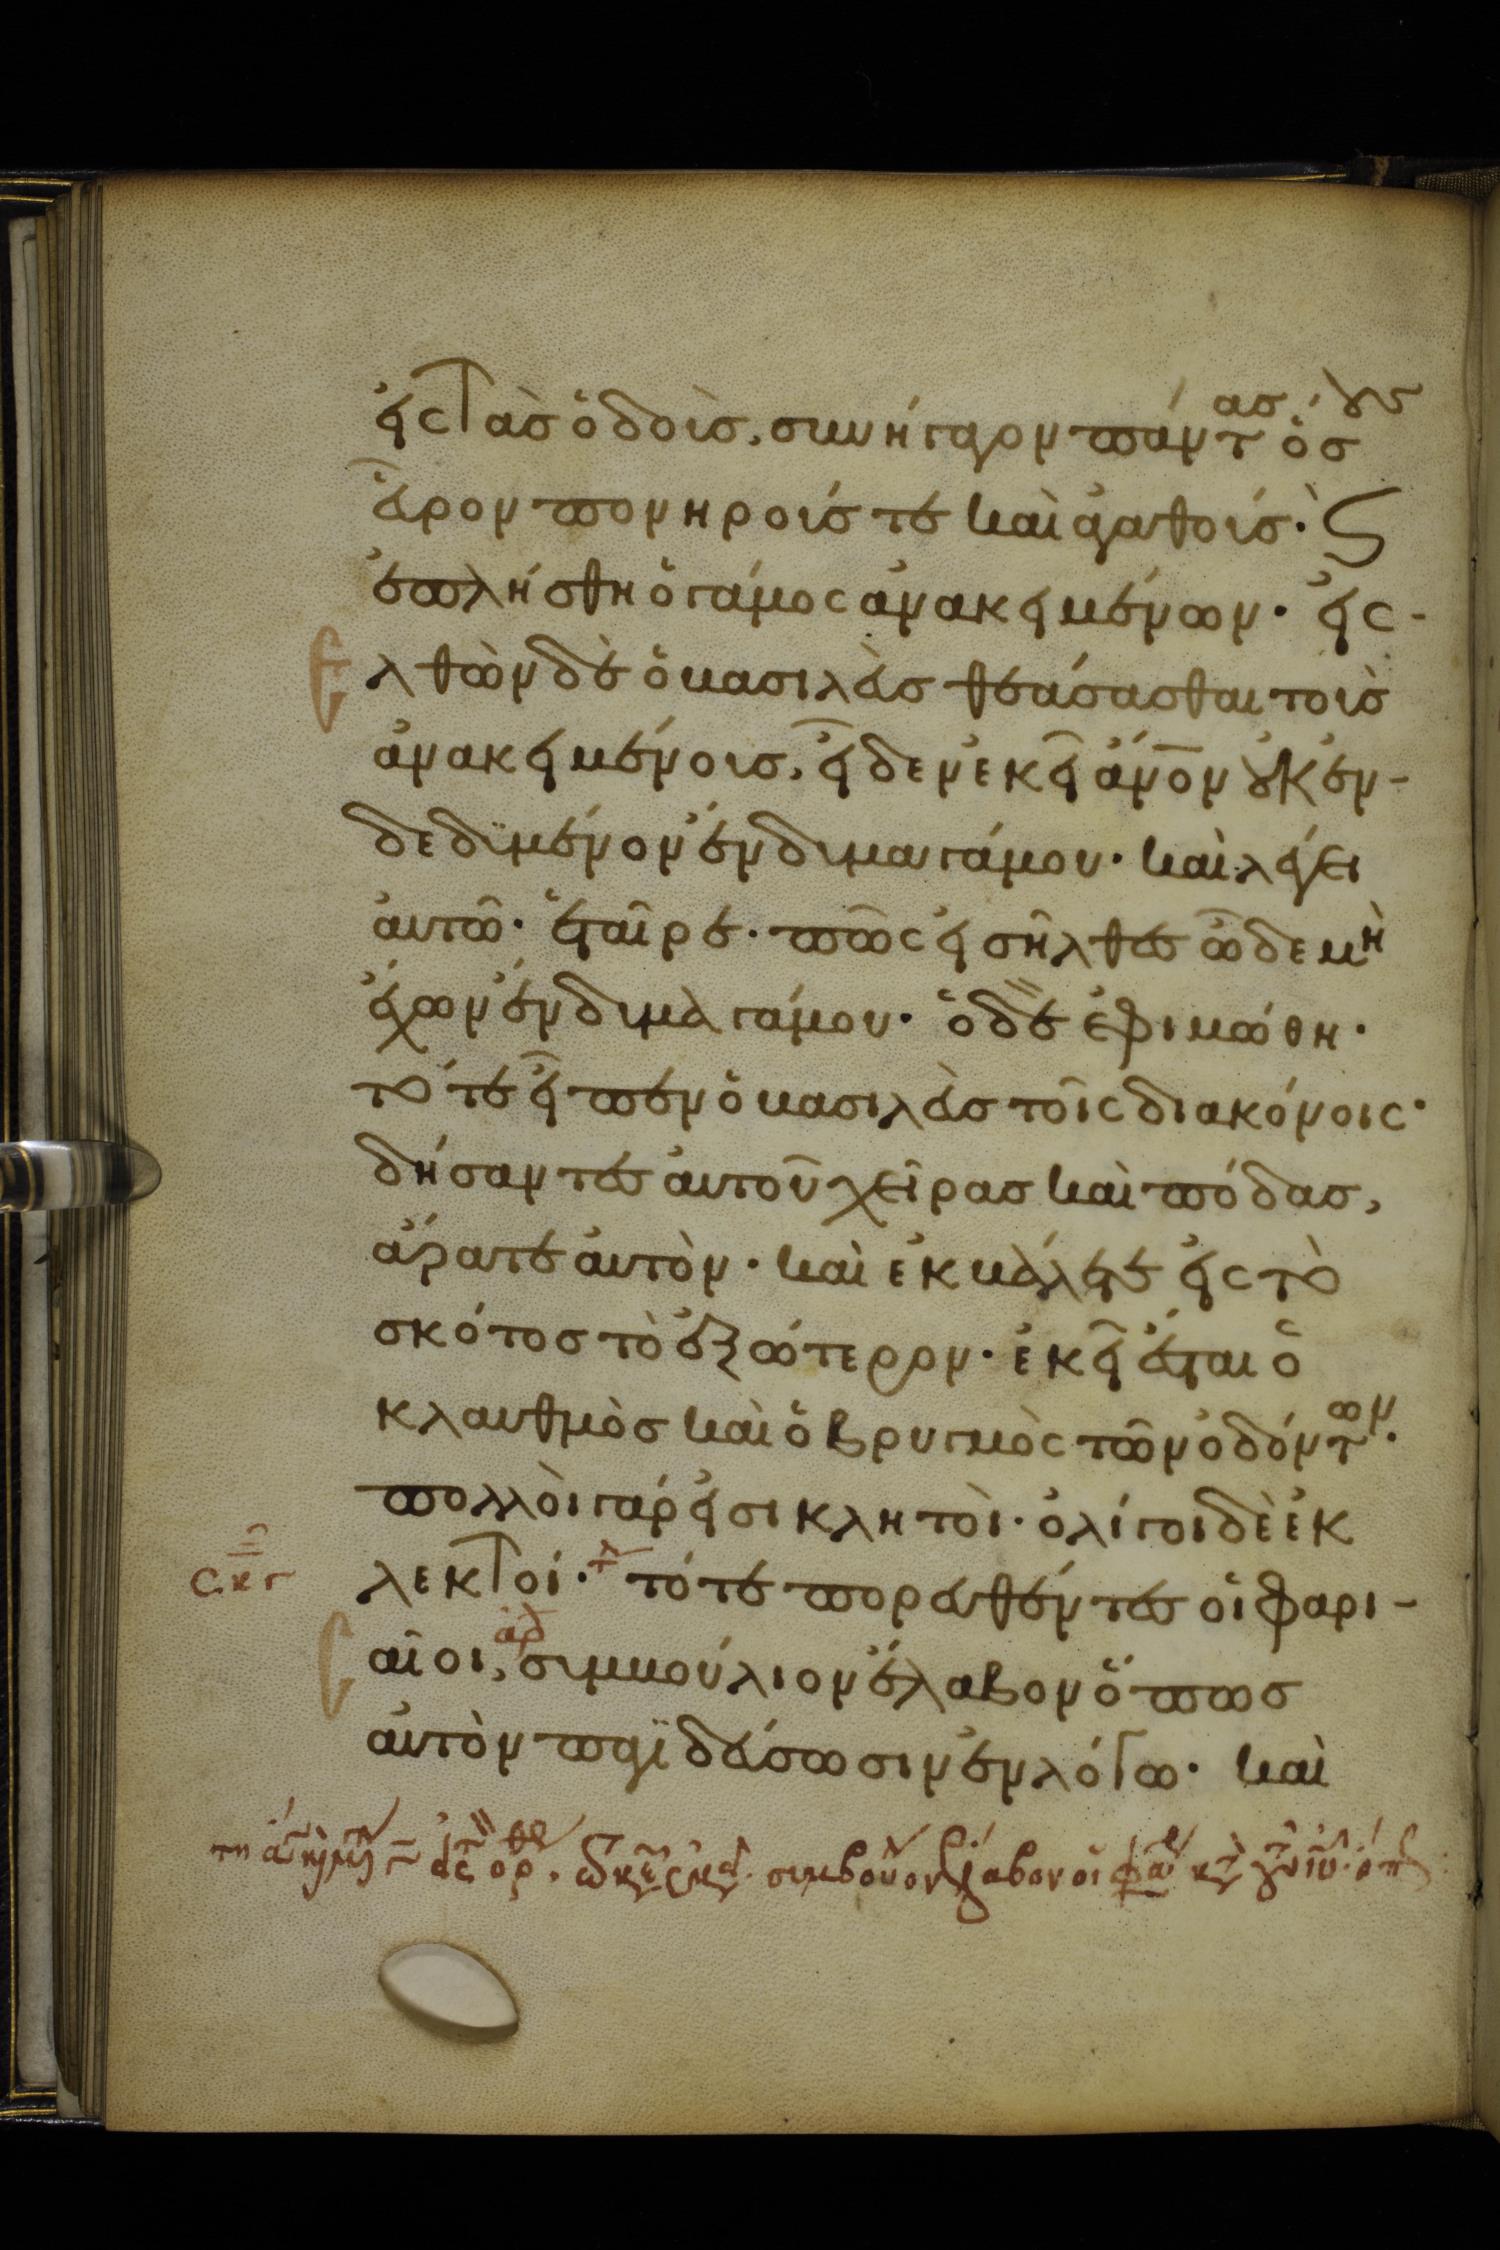 εἰς τὰς ὁδοὺς, συνήγαγον πάντας οὓς
εὗρον πονηροὺς τε καὶ ἀγαθούς· καὶ
ἐπλήσθη ὁ γάμος ἀνακειμένων· εἰσ-
ελθὼν δὲ ὁ βασιλεὺς θεάσασθαι τοὺς
ἀνακειμένους, εἶδεν ἐκεῖ ἄνον οὐκ ἐν-
δεδυμένον ἔνδυμα γάμου· καὶ λέγει
αὐτῶ· ἑταῖρε· πῶς εἰσῆλθες ὧδε μὴ
ἔχων ἔνδυμα γάμου· ὁ δὲ ἐφιμώθη·
τότε εἶπεν ὁ βασιλεὺς τοῖς διακόνοις·
δήσαντες αὐτοῦ χεῖρας καὶ πόδας,
ἄρατε αὐτὸν· καὶ ἐκβάλετε εἰς τὸ
σκότος τὸ ἐξώτερον· ἐκεῖ ἔσται ὁ
κλαυθμὸς καὶ ὁ βρυγμὸς τῶν ὀδόντων·
πολλοὶ γάρ εἰσι κλητοὶ· ὀλίγοι δὲ ἐκ
λεκτοί· τότε πορευθέντες οἱ φαρι-
αῖοι, συμβούλιον ἔλαβον ὅπως
αὐτὸν παγιδεύσωσιν ἐν λόγω· καὶ